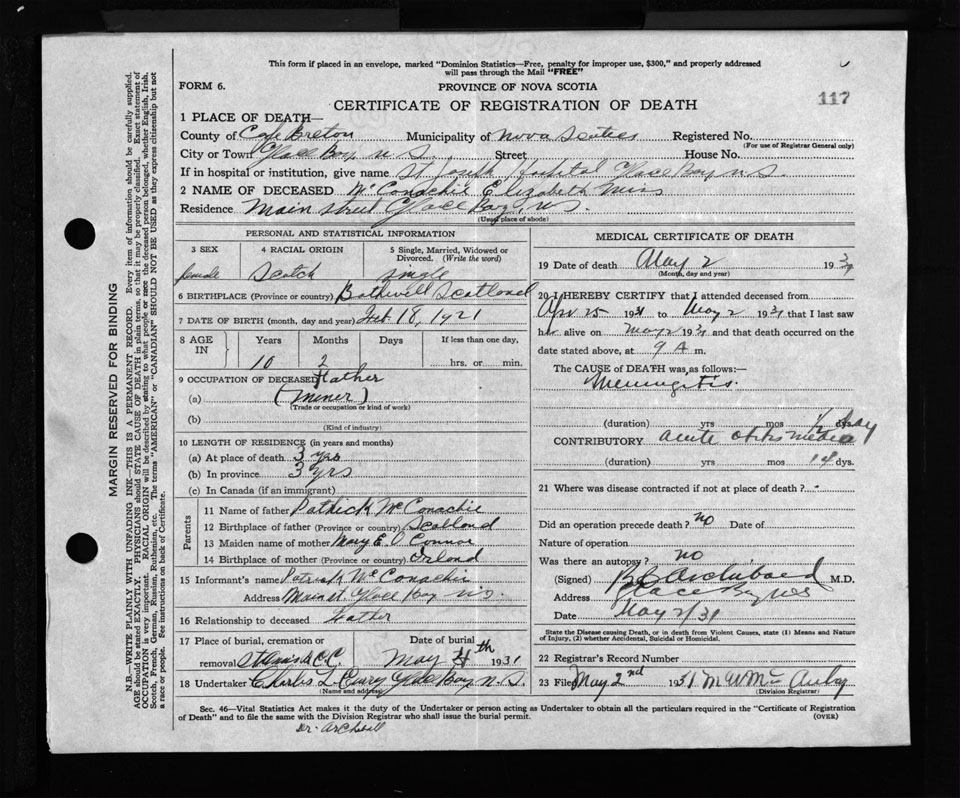 This form if placed in an envelope, marked "Dominion Statistics—Free, penalty for improper use, $300," and properly addressed
will pass through the Mail "FREE"
FORM 6.
PROVINCE OF NOVA SCOTIA
CERTIFICATE OF REGISTRATION OF DEATH
117
1 PLACE OF DEATH—
County of Cape Breton Municipality of Nova Scotia Registered No.
(For use of Registrar General only)
City or Town Glace Bay, N S. Street House No.
If in hospital or institution, give name St Joseph Hospital Glace Bay N.S.
2 NAME OF DECEASED McConachie Elizabeth Miss
Residence Main Street Glace Bay, NS.
(Usual place of abode)
PERSONAL AND STATISTICAL INFORMATION
3 SEX 4 RACIAL ORIGIN 5 Single, Married, Widowed or Divorced. (Write the word)
female Scotch single
6 BIRTHPLACE (Province or country) Bothwell Scotland
7 DATE OF BIRTH (month, day and year) Feb 18, 1921
8 AGE IN Years Months Days If less than one day,
10 2 hrs. or min.
9 OCCUPATION OF DECEASED Father
(a) (miner)
(Trade or occupation or kind of work)
(b)
(Kind of industry)
10 LENGTH OF RESIDENCE (in years and months)
(a) At place of death 3 yrs
(b) In province 3 yrs
(c) In Canada (if an immigrant)
Parents
11 Name of father Patrick McConachie
12 Birthplace of father (Province or country) Scotland
13 Maiden name of mother Mary E. O Connor
14 Birthplace of mother (Province or country) Irland
15 Informant's name Patrick McConachie
Address Main St Glace Bay NS.
16 Relationship to deceased Father
17 Place of burial, cremation or removal C.C. Date of burial May 4th 1931
18 Undertaker Charles L Curry Glace Bay, N.S.
(Name and address)
MEDICAL CERTIFICATE OF DEATH
19 Date of death May 2 1931
(Month, day and year)
20 I HEREBY CERTIFY that I attended deceased from
Apr 25 1931 to May 2 1931 that I last saw
her alive on May 2 1931 and that death occurred on the
date stated above, at 9 A m.
The CAUSE of DEATH was as follows:—
Meningitis.
(duration) yrs mos ½ day
CONTRIBUTORY acute otitis media
(duration) yrs mos dys.
21 Where was disease contracted if not at place of death?
Did an operation precede death? no Date of
Nature of operation
Was there an autopsy? no
(Signed) Archibald M.D.
Address Glace Bay NS
Date May 2/31
State the Disease causing Death, or in death from Violent Causes, state (1) Means and Nature of Injury, (2) whether Accidental, Suicidal or Homicidal.
22 Registrar's Record Number
23 Filed May 2nd 1931
(Division Registrar)
Sec. 46—Vital Statistics Act makes it the duty of the Undertaker or person acting as Undertaker to obtain all the particulars required in the "Certificate of Registration
of Death" and to file the same with the Division Registrar who shall issue the burial permit.
(OVER)
Dr. Archibald
MARGIN RESERVED FOR BINDING
N.B.—WRITE PLAINLY WITH UNFADING INK—THIS IS A PERMANENT RECORD. Every item of information should be carefully supplied.
AGE should be stated EXACTLY. PHYSICIANS should STATE CAUSE OF DEATH in plain terms, so that it may be properly classified. Exact statement of
OCCUPATION is very important. RACIAL ORIGIN will be described by stating to what people or race the deceased person belonged, whether English, Irish,
Scotch, French, German, Russian, Ruthenian, etc. The terms "AMERICAN" or "CANADIAN" SHOULD NOT BE USED as they express citizenship but not
a race or people. See instructions on back of Certificate.